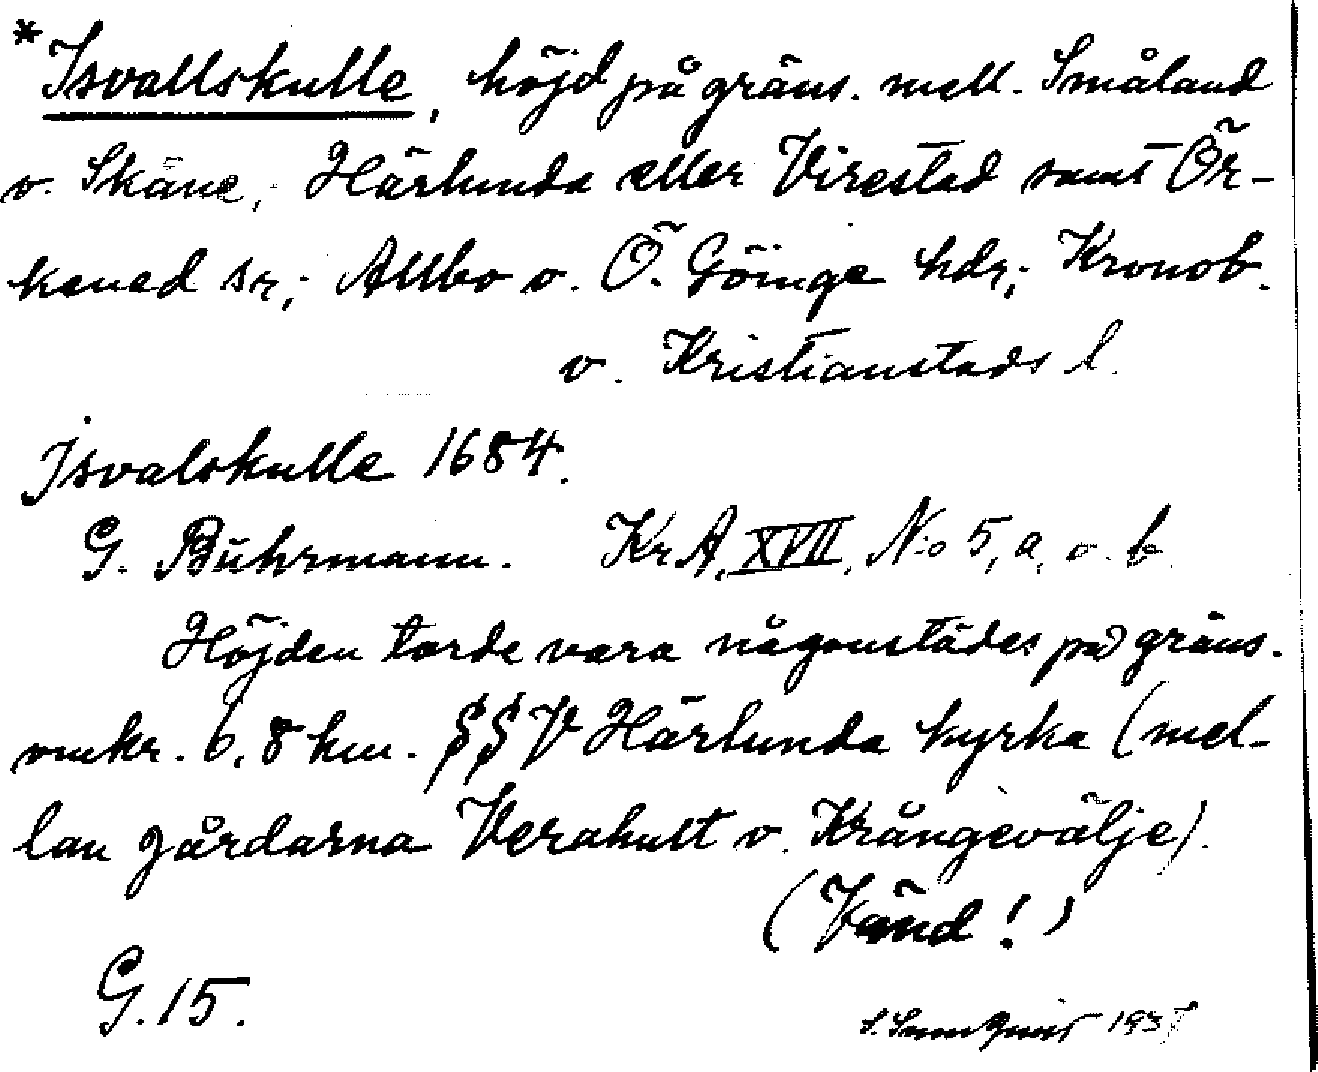 *Isvallskulle, höjd på gräns. mell. Småland
o. Skåne; Härlunda eller Virestad samt Ör-
kened sr; Allbo o. Ö. Göinge hdr; Kronob.
o. Kristianstads l.
Isvalskulle 1684.
G. Buhrmann. KrA, XVII, No 5, a, o. b.
Höjden torde vara någonstädes på gräns.
omkr. 6,8 km. SSV Härlunda kyrka (mel-
lan gårdarna Verahult o. Krångevälje).
(Vänd!)
G. 15.